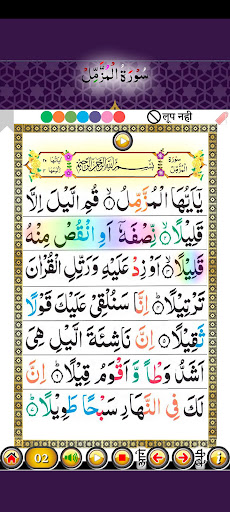 سُوْرَةُ الْمُزَّمِّلِ
लूप नही
سُوْرَةُ الْمُزَّمِّل
بِسْمِ اللّٰهِ الرَّحْمٰنِ الرَّحِيْمِ
يٰۤاَيُّهَا الْمُزَّمِّلُ ۙ‏﴿۱﴾ قُمِ الَّيْلَ اِلَّا
قَلِيْلًا ۙ‏﴿۲﴾ نِّصْفَهٗۤ اَوِ انْقُصْ مِنْهُ
قَلِيْلًا ۙ‏﴿۳﴾ اَوْ زِدْ عَلَيْهِ وَرَتِّلِ الْقُرْاٰنَ
تَرْتِيْلًا ؕ‏﴿۴﴾ اِنَّا سَنُلْقِيْ عَلَيْكَ قَوْلًا
ثَقِيْلًا ﴿۵﴾ اِنَّ نَاشِئَةَ الَّيْلِ هِيَ
اَشَدُّ وَطْاً وَّ اَقْوَمُ قِيْلًا ؕ‏﴿۶﴾ اِنَّ
لَكَ فِي النَّهَارِ سَبْحًا طَوِيْلًا ؕ‏﴿۷﴾
02